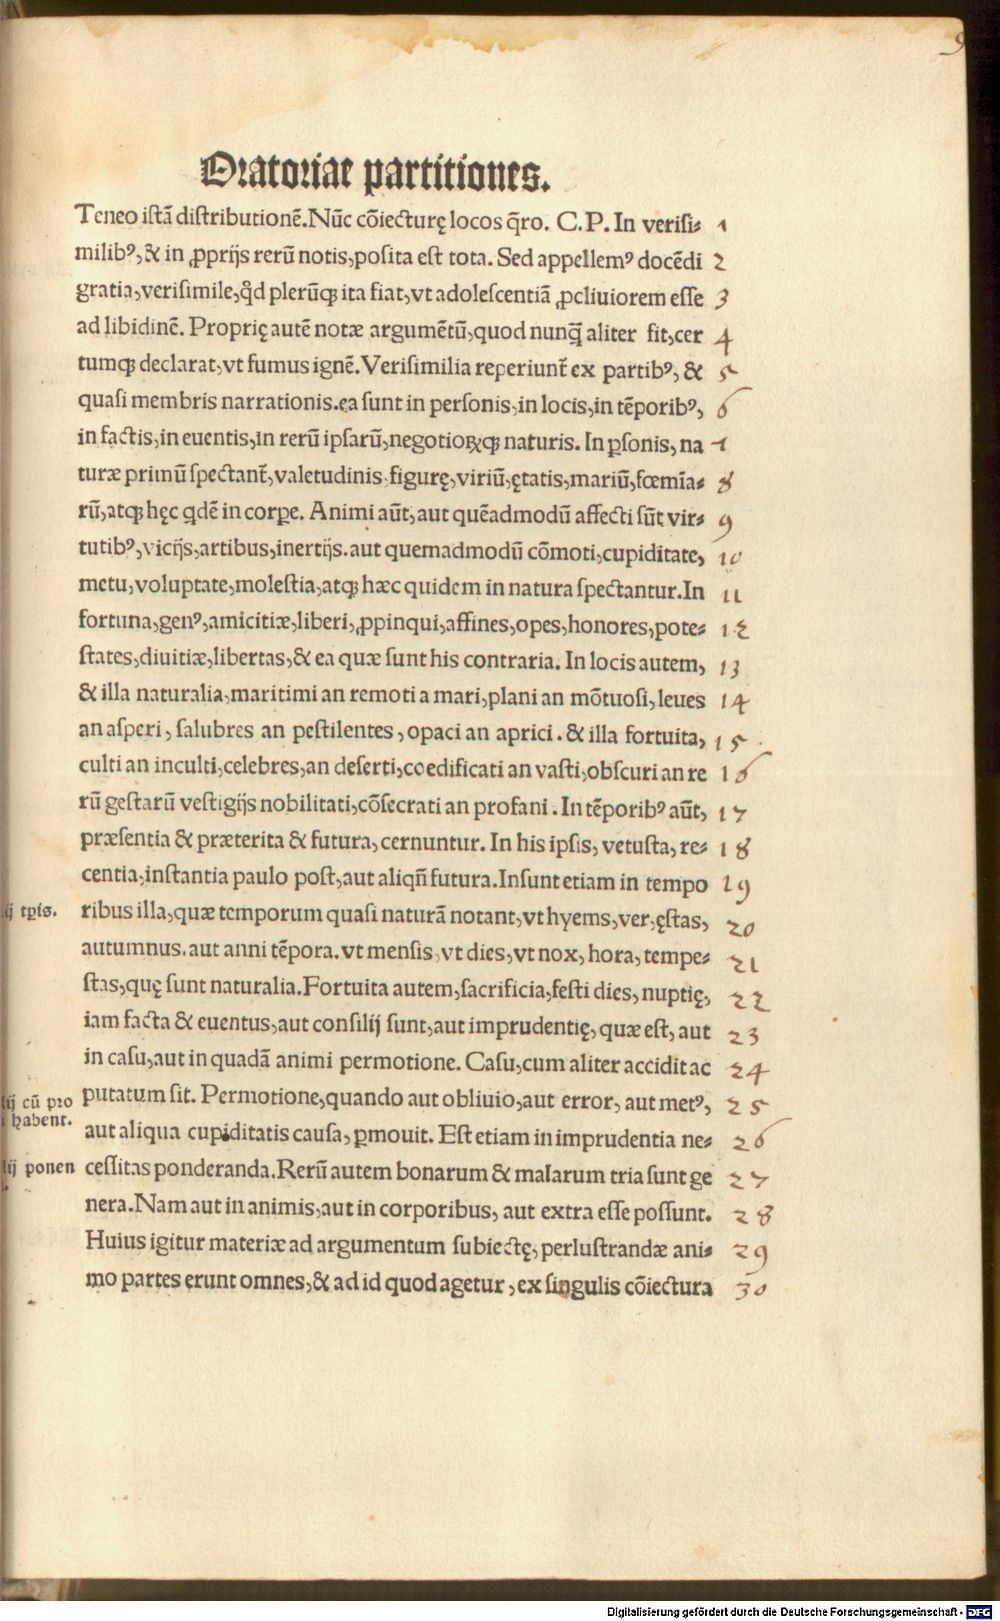 9
Oratoriae partitiones.
Teneo istā distributionē. Nūc cōiecturę locos q̄ro. C.P. In verisi⸗ 1
milibꝰ, & in ꝓprijs rerū notis, posita est tota. Sed appellemꝰ docēdi 2
gratia, verisimile, qd̄ plerūqꝫ ita fiat, vt adolescentiā ꝓcliuiorem esse 3
ad libidinē. Proprię autē notæ argumētū, quod nunq̄ aliter fit, cer 4
tumqꝫ declarat, vt fumus ignē. Verisimilia reperiunt̄ ex partibꝰ, & 5
quasi membris narrationis. ea sunt in personis, in locis, in tēporibꝰ, 6
in factis, in euentis, in rerū ipsarū, negotioꝝqꝫ naturis. In ꝑsonis, na 7
turæ primū spectant̄, valetudinis figurę, viriū, ętatis, mariū, fœmīa⸗ 8
rū, atqꝫ hęc qdē in corꝑe. Animi aūt, aut quēadmodū affecti sūt vir⸗ 9
tutibꝰ, vicijs, artibus, inertijs. aut quemadmodū cōmoti, cupiditate, 10
metu, voluptate, molestia, atqꝫ hæc quidem in natura spectantur. In 11
fortuna, genꝰ, amicitiæ, liberi, ꝓpinqui, affines, opes, honores, pote⸗ 12
states, diuitiæ, libertas, & ea quæ sunt his contraria. In locis autem, 13
& illa naturalia, maritimi an remoti a mari, plani an mōtuosi, leues 14
an asperi, salubres an pestilentes, opaci an aprici. & illa fortuita, 15
culti an inculti, celebres, an deserti, coedificati an vasti, obscuri an re 16
rū gestarū vestigijs nobilitati, cōsecrati an profani. In tēporibꝰ aūt, 17
præsentia & præterita & futura, cernuntur. In his ipsis, vetusta, re⸗ 18
centia, instantia paulo post, aut aliqn̄ futura. Insunt etiam in tempo 19
ij tꝑis.
ribus illa, quæ temporum quasi naturā notant, vt hyems, ver, ęstas, 20
autumnus. aut anni tēpora. vt mensis, vt dies, vt nox, hora, tempe⸗ 21
stas, quę sunt naturalia. Fortuita autem, sacrificia, festi dies, nuptię, 22
iam facta & euentus, aut consilij sunt, aut imprudentię, quæ est, aut 23
in casu, aut in quadā animi permotione. Casu, cum aliter accidit ac 24
ij cū pro
putatum sit. Permotione, quando aut obliuio, aut error, aut metꝰ, 25
habent.
aut aliqua cupiditatis causa, ꝑmouit. Est etiam in imprudentia ne⸗ 26
ij ponen
cessitas ponderanda. Rerū autem bonarum & malarum tria sunt ge 27
nera. Nam aut in animis, aut in corporibus, aut extra esse possunt. 28
Huius igitur materiæ ad argumentum subiectę, perlustrandæ ani⸗ 29
mo partes erunt omnes, & ad id quod agetur, ex singulis cōiectura 30
Digitalisierung gefördert durch die Deutsche Forschungsgemeinschaft - DFG